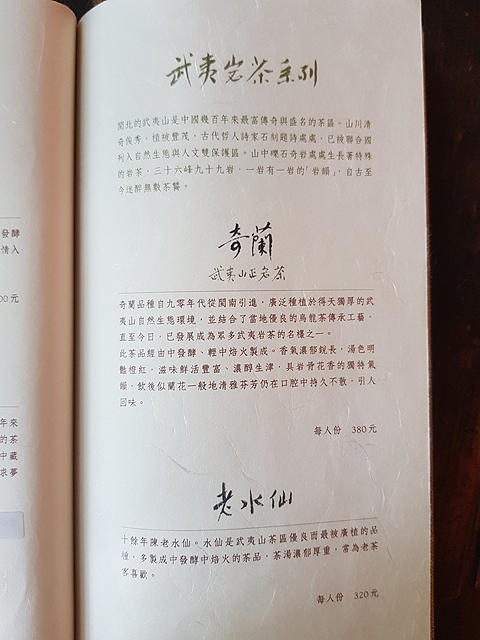 武夷岩茶系列
閩北的武夷山是中國幾百年來最富傳奇與盛名的茶區。山川清
奇俊秀，植被豐茂，古代哲人詩家石刻題詩處處，已被聯合國
列入自然生態與人文雙保護區。山中礫石奇岩處處生長著特殊
的岩茶，三十六峰九十九岩，一岩有一岩的「岩韻」，自古至
今迷醉無數茶饕。
奇蘭
武夷山正岩茶
奇蘭品種自九零年代從閩南引進，廣泛種植於得天獨厚的武
夷山自然生態環境，並結合了當地優良的烏龍茶傳承工藝，
直至今日，已發展成為眾多武夷岩茶的名欉之一。
此茶品經由中發酵、輕中焙火製成。香氣濃郁銳長，湯色明
豔橙紅，滋味鮮活豐富、濃醇生津，具岩骨花香的獨特氣
韻，飲後似蘭花一般地清雅芬芳仍在口腔中持久不散，引人
回味。
每人份 380元
老水仙
十餘年陳老水仙。水仙是武夷山茶區優良而最被廣植的品
種，多製成中發酵中焙火的茶品，茶湯濃郁厚重，常為老茶
客喜歡。
每人份 320元
發酵
情入
00元
年來
的茶
中藏
求夢